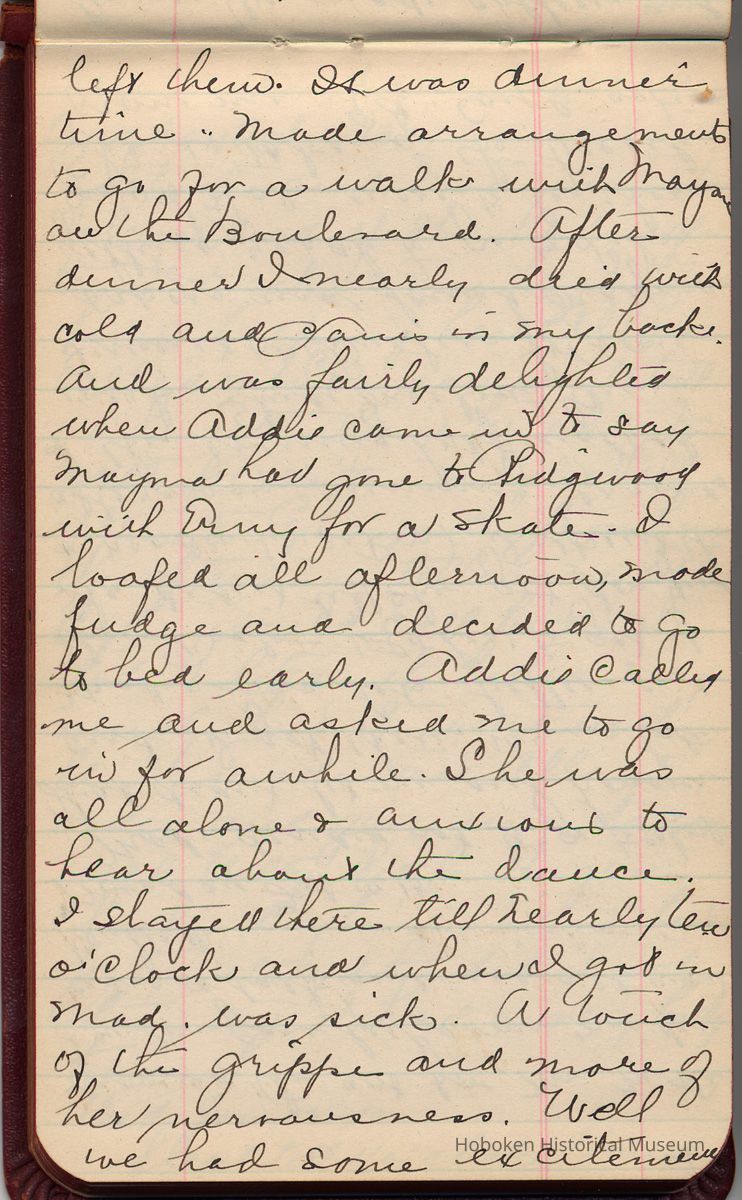 left them. It was dinner
time .. Made arrangements
to go for a walk with Mayme
on the Boulevard. After
dinner I nearly died with
cold and Pains in my back.
And was fairly delighted
when Addie came in to say
Mayme had gone to Ridgwood
with Erny for a skate. I
loafed all afternoon, made
fudge and decided to go
to bed early. Addie called
me and asked me to go
in for awhile. She was
all alone & anxious to
hear about the dance.
I stayed there till nearly ten
o'clock and when I got in
Mad. was sick. A touch
of the grippe and more of
her nervousness. Well
we had some excitement
Hoboken Historical Museum